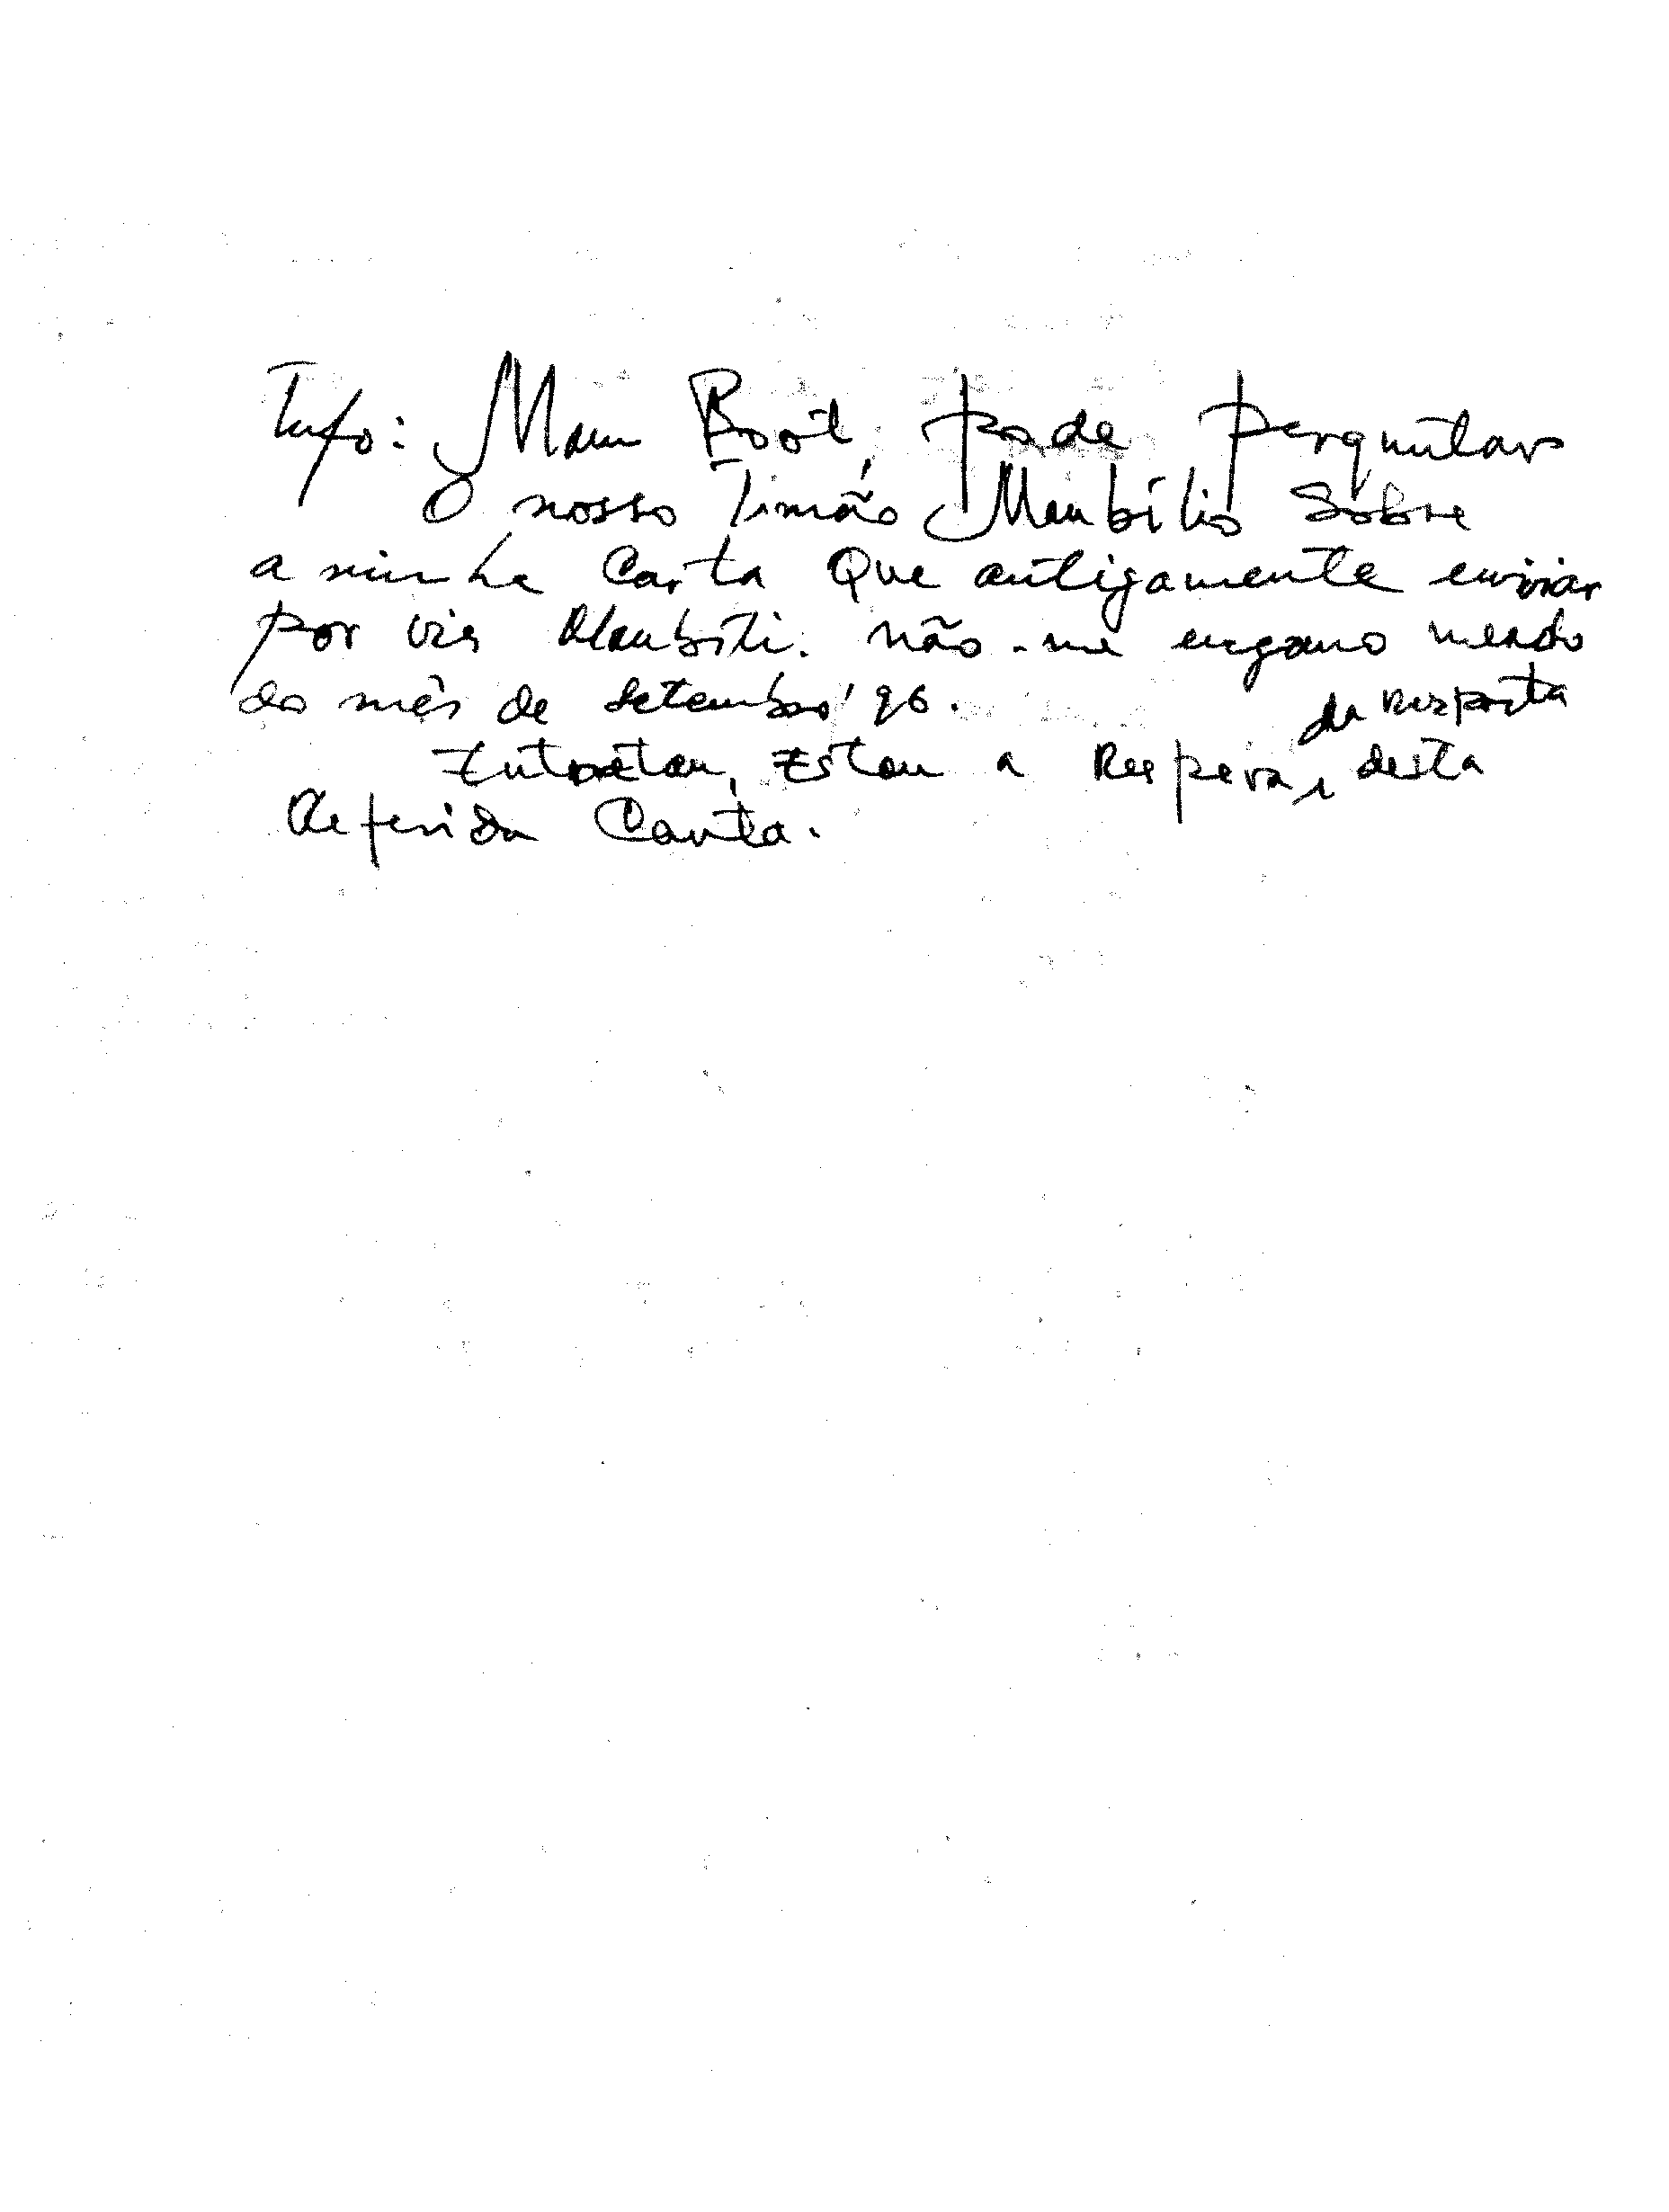 Info: Mau Boot, pode perguntar
O nosso Irmão Maubílio Sobre
a minha Carta Que antigamente enviar
por via Maubíli. não-me engano meado
do mês de Setembro '96.
da resposta
Entretan, Estou a Respera, desta
Referida Carta.